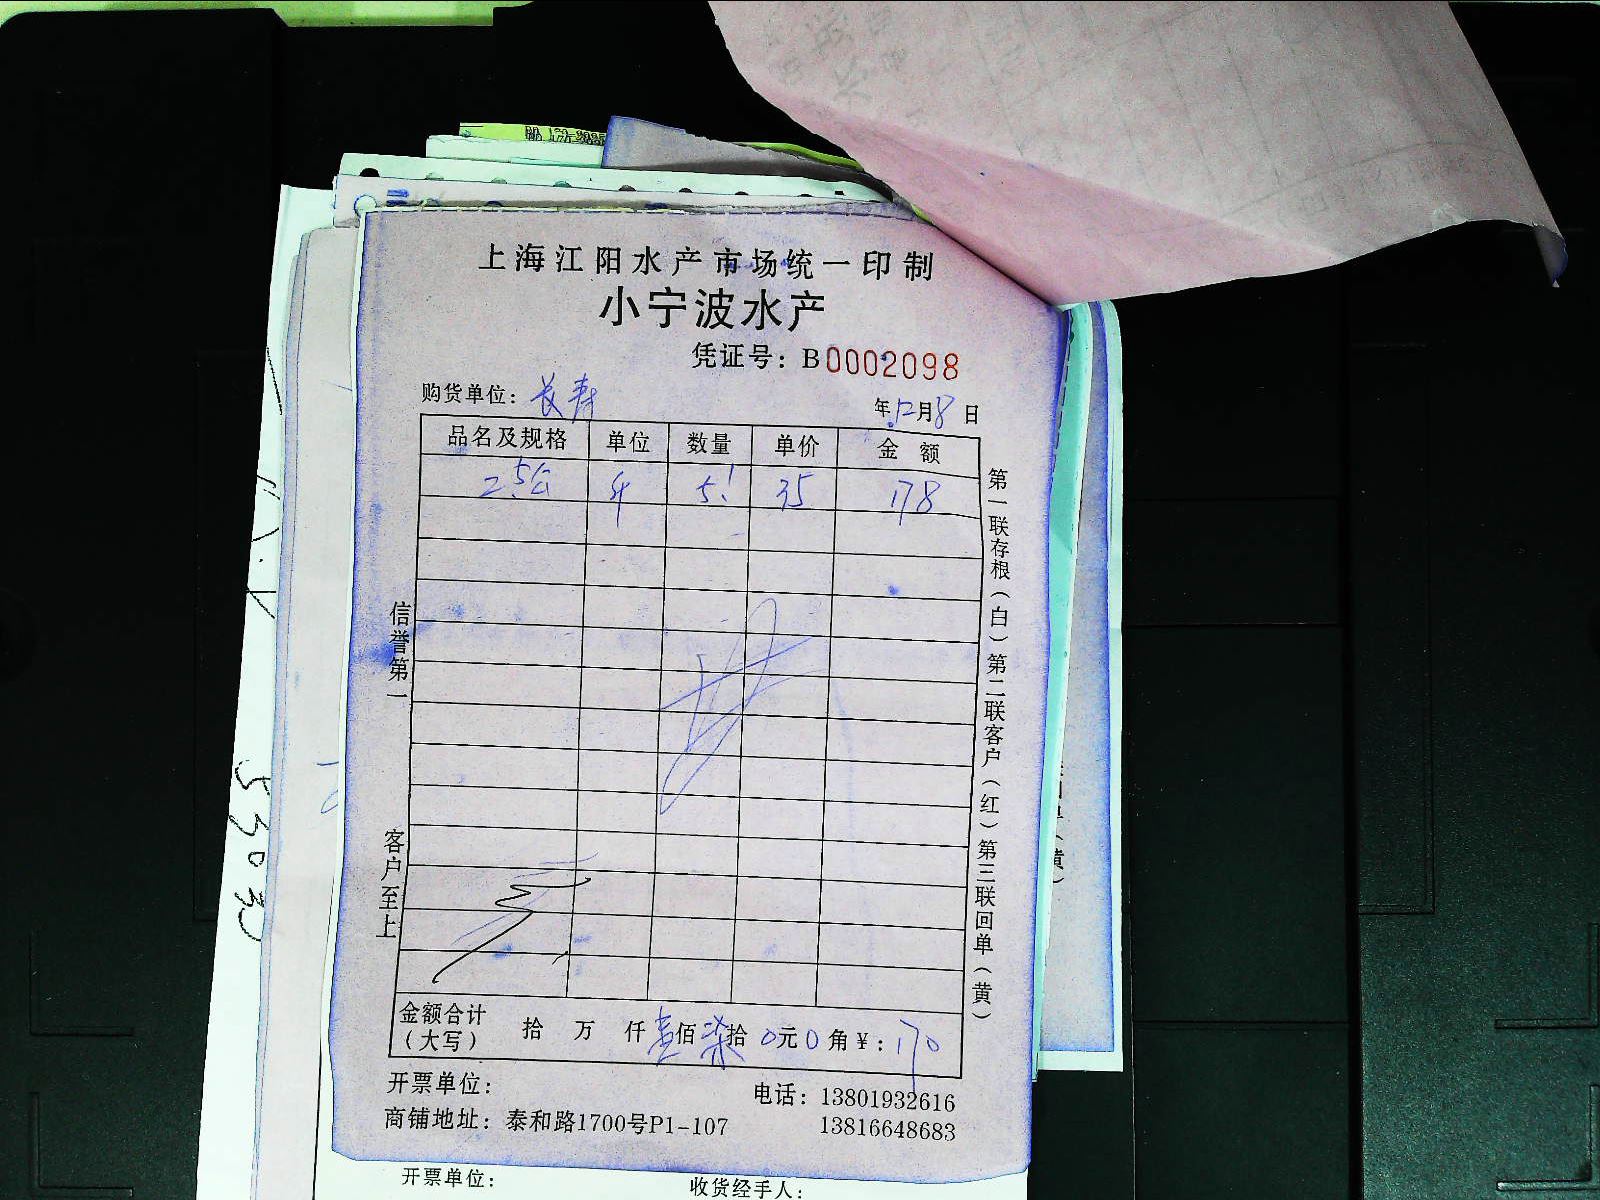 上海江阳水产市场统一印制
小宁波水产
凭证号：B0002098
购货单位：长寿
年12月8日
品名及规格 单位 数量 单价 金额
2.5公 斤 5.1 35 178
信誉第一
客户至上
第一联存根（白）第二联客户（红）第三联回单（黄）
金额合计（大写） 拾 万 仟壹佰柒拾0元0角¥：170
开票单位：
电话：13801932616
商铺地址：泰和路1700号P1-107
13816648683
开票单位：
收货经手人：
5303